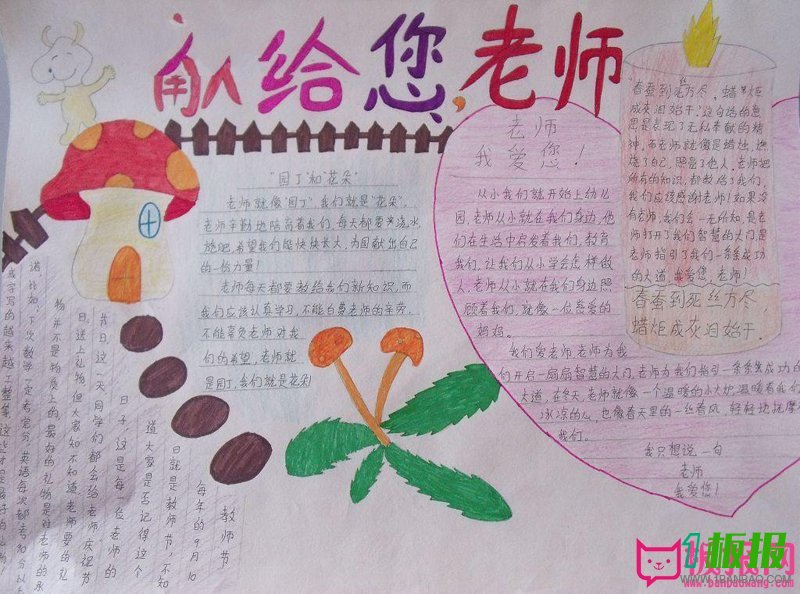 献给您,老师
"园丁"和"花朵"
老师就像"园丁",我们就是"花朵",
老师辛勤地陪育着我们,每天都要来浇水,
施肥,希望我们能快快长大,为国献出自己
的一份力量!
老师每天都要教给我们新知识,而
我们应该认真学习,不能白费老师的辛劳,
不能辜负老师对我
们的希望,老师就
是园丁,我们就是花朵!
老师
我爱您!
从小我们就开始上幼儿
园,老师从小就在我们身边,他
们在生活中启发着我们,教育
我们,让我们从小学会怎样做
人,老师从小就在我们身边照
顾着我们,就像一位慈爱的
妈妈。
我们爱老师,老师为我
们开启一扇扇智慧的大门,老师为我们指引一条条成功的
大道,在冬天,老师就像一个温暖的小火炉,温暖着我们
冰凉的心,也像春天里的一丝春风,轻轻地抚摩
我们。
我只想说一句
老师
我爱您!
春蚕到死丝方尽,蜡炬
成灰泪始干,这句话的意
思是表现了无私奉献的精
神,而老师就像是蜡烛,燃
烧了自己,照亮了他人,老师把
所有的知识,都教给了我们,
我们应该感谢老师!如果没
有老师,我们会一无所知,是老
师打开了我们智慧的大门,是
老师指引了我们一条条成功
的大道,我爱您,老师!
春蚕到死丝方尽
蜡炬成灰泪始干.
教师节
每年的9月10
日就是教师节,不知
道大家是否记得这个
日子,这是每一位老师的
节日,这一天,同学们都会给老师庆祝节
日,送上礼物,但大家知不知道老师要的礼
物并不是物质上的,最好的礼物是对老师的
1板报
WWW.1BANBAO.COM
板报网
www.banbaowang.com